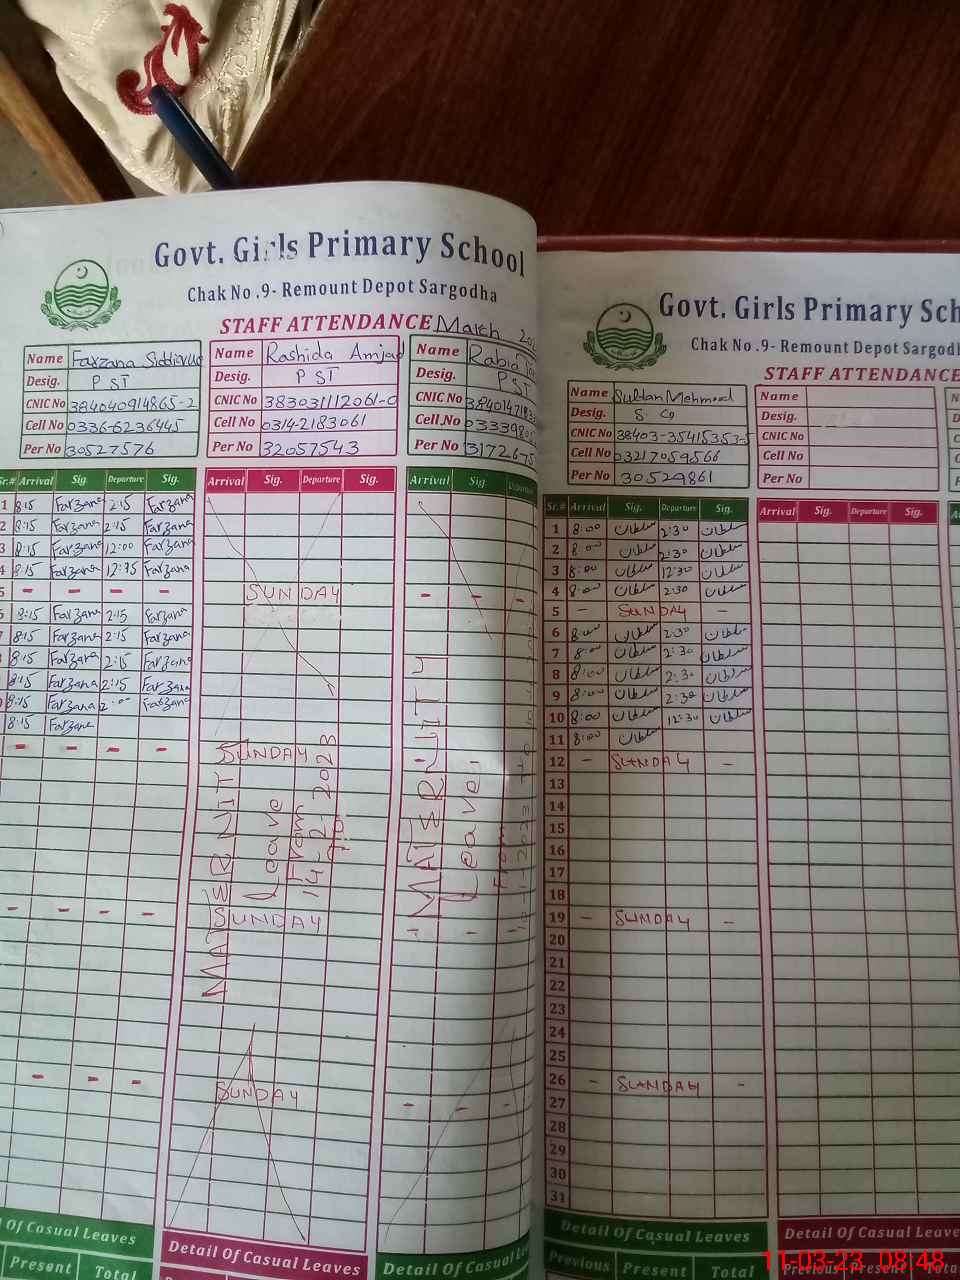 Govt. Girls Primary School
Chak No .9- Remount Depot Sargodha
STAFF ATTENDANCE March
Name Farzana
Desig. PST
CNIC No 384040914865-2
Cell No 0336-6236445
Per No 30527576
Name Rashida Amjad
Desig. PST
CNIC No 383031112061-0
Cell No 0314-2183061
Per No 32057543
Name Rabia
Desig. PST
CNIC No
Cell No
Per No
Sr.# Arrival Sig. Departure Sig.
Arrival Sig. Departure Sig.
Arrival Sig. Departure
1 8:15 Farzana 2:15 Farzana
2 8:15 Farzana 2:15 Farzana
3 8:15 Farzana 12:00 Farzana
4 8:15 Farzana Farzana
5 - - - -
6 8:15 Farzana 2:15 Farzana
8:15 Farzana 2:15 Farzana
8:15 Farzana 2:15 Farzana
8:15 Farzana 2:15 Farzana
8:15 Farzana Farzana
8:15 Farzana
- - - -
- - - -
- - -
SUNDAY
SUNDAY
SUNDAY
SUNDAY
Leave
From
14-2-2023
MATERNITY
Leave
From
Detail Of Casual Leaves
Present Total
Detail Of Casual Leaves
Detail Of Casual
Govt. Girls Primary
Chak No .9- Remount Depot
STAFF ATTENDANCE
Name Sultan Mehmood
Desig.
CNIC No
Cell No 03217059566
Per No 30529861
Name
Desig.
CNIC No
Cell No
Per No
Sr.# Arrival Sig. Departure Sig.
Arrival Sig. Departure Sig.
1 8:00 سلطان 2:30 سلطان
2 8:00 سلطان 2:30 سلطان
3 8:00 سلطان 12:30 سلطان
4 8:00 سلطان 2:30 سلطان
5 - SUNDAY -
6 8:00 سلطان 2:30 سلطان
7 8:00 سلطان 2:30 سلطان
8 8:00 سلطان 2:30 سلطان
9 8:00 سلطان 2:30 سلطان
10 8:00 سلطان 12:30 سلطان
11 8:00 سلطان
12 - SUNDAY -
13
14
15
16
17
18
19 - SUNDAY -
20
21
22
23
24
25
26 - SUNDAY -
27
28
29
30
31
Detail Of Casual Leaves
Previous Present Total
Detail Of Casual Leaves
Previous Present Total
11-03-23 08:48